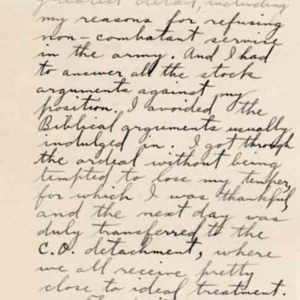 greatest detail, including
my reasons for refusing
non-combatant service
in the army. And I had
to answer all the stock
arguments against my
position. I avoided the
Biblical arguments usually
indulged in. I got through
the ordeal without being
tempted to lose my temper,
for which I was thankful,
and the next day was
duly transferred to the
C.O. detachment, where
we all receive pretty
close to ideal treatment.